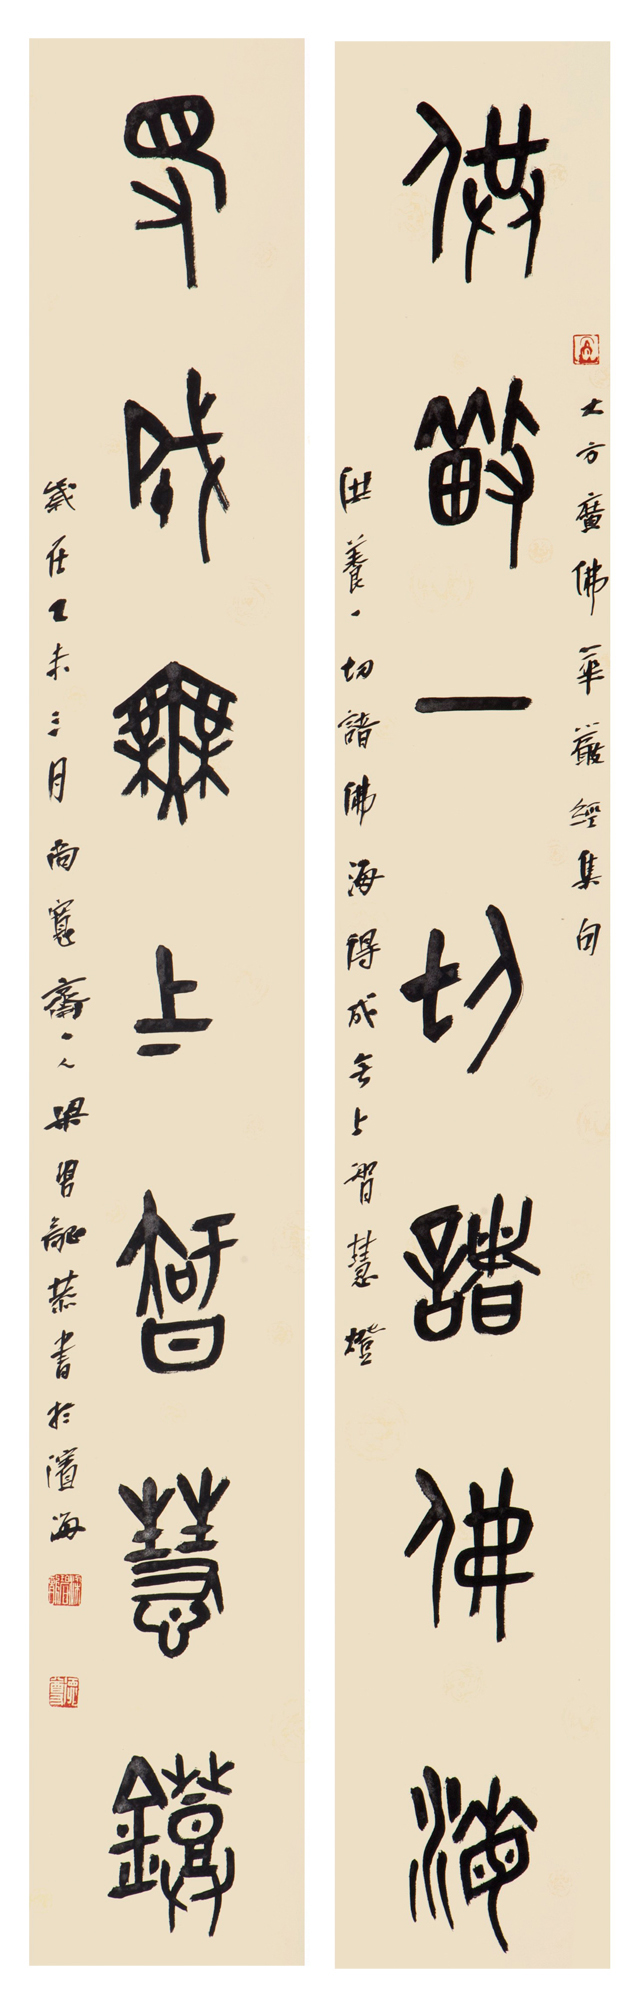 大方廣佛華嚴經集句
供養一切諸佛海
供養一切諸佛海得成无上智慧燈
得成無上智慧鐙
歲在乙未三月尚寬齋人梁恭書於濱海